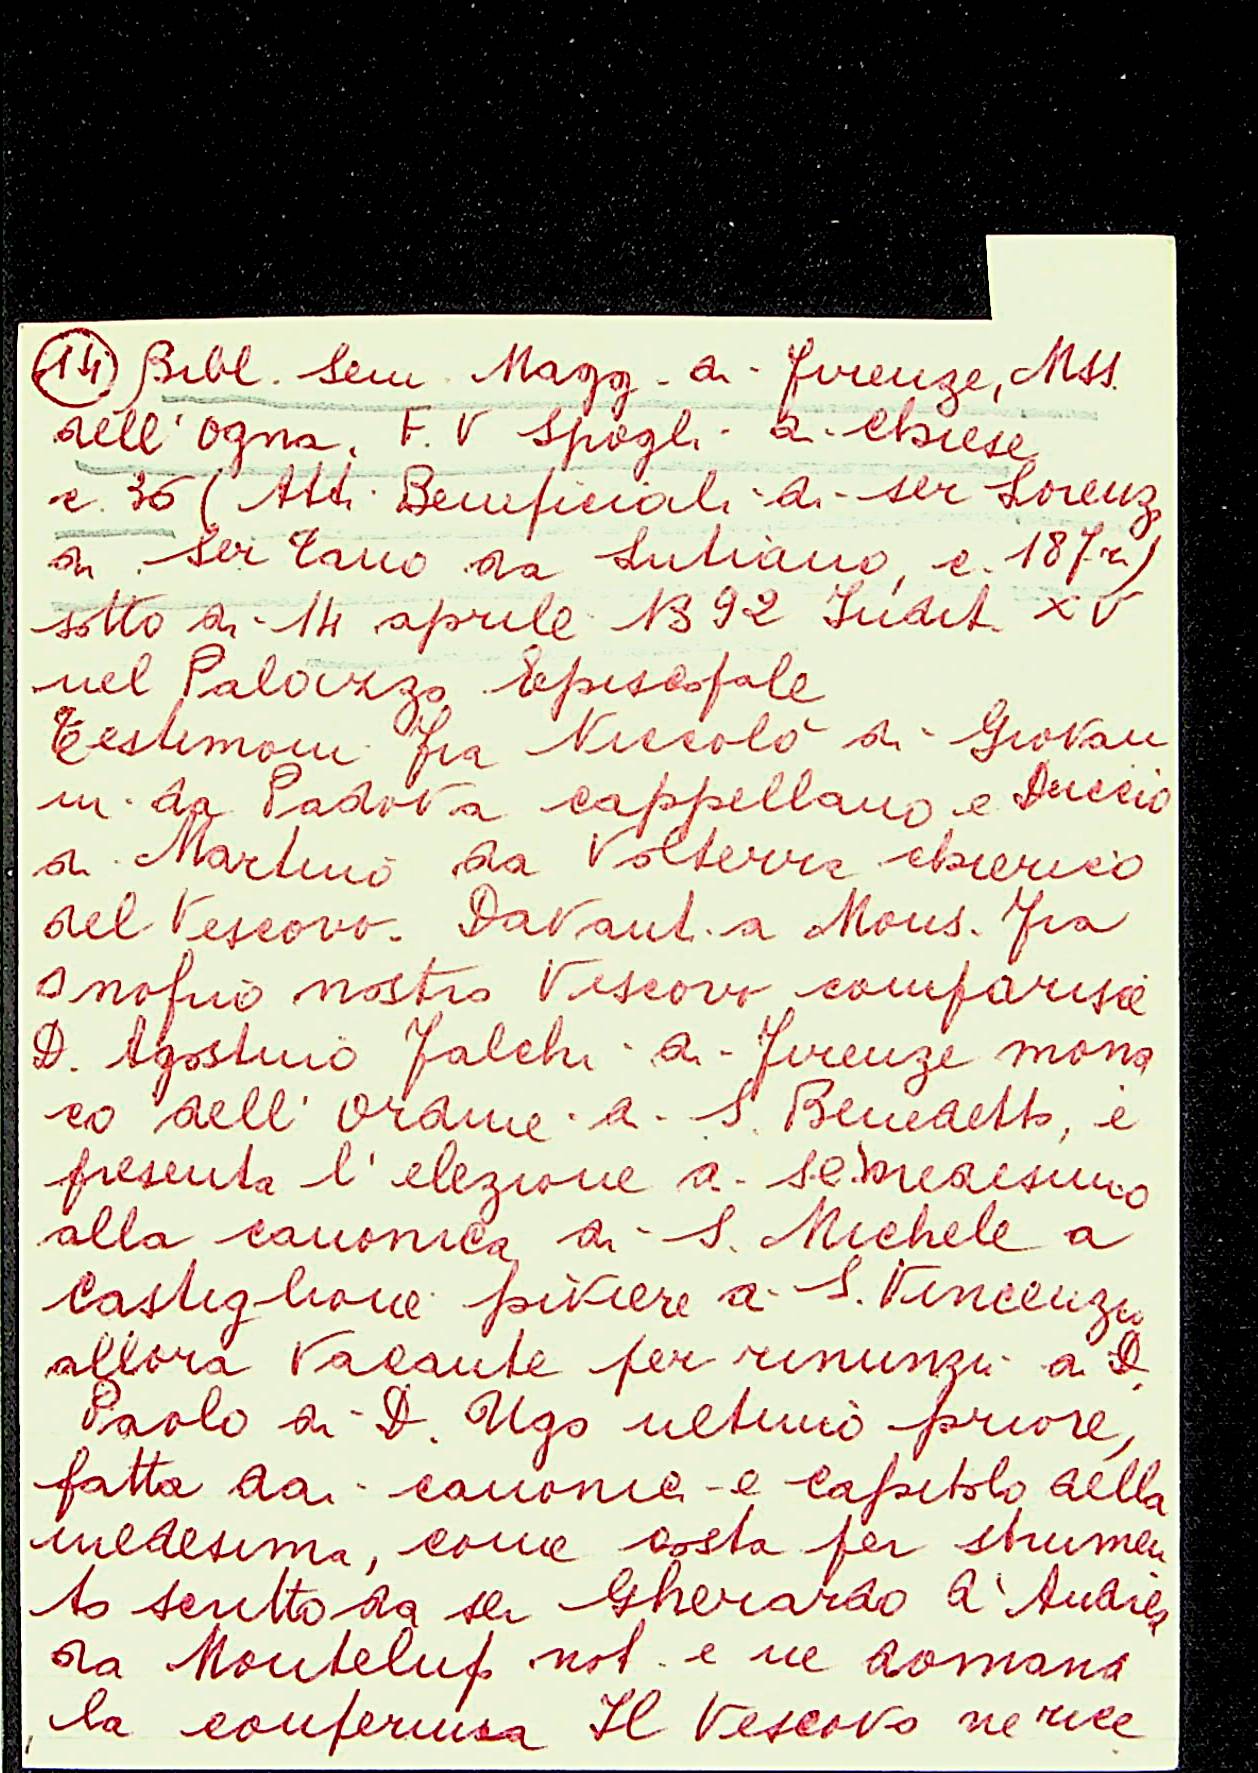 (14) Bibl. Sem. Magg. di Firenze, Mss.
dell'Ogna, F. V Spogli di chiese
c. 36 (Atti Beneficiali di ser Lorenzo
di Ser Tano da Lutiano, c. 187r)
sotto di 14 aprile 1392 Indict. XV
nel Palazzo Episcopale
Testimoni fra Niccolò di Giovan
ni da Padova cappellano e Duccio
di Martino da Volterra chierico
del Vescovo. Davanti a Mons. fra
Onofrio nostro Vescovo comparisce
D. Agostino Falchi di Firenze mona
co dell'Ordine di S. Benedetto, e
presenta l'elezione di se medesimo
alla canonica di S. Michele a
Castiglione piviere di S. Vincenzo
allora vacante per rinunzia di D.
Paolo di D. Ugo ultimo priore,
fatta dai canonici e capitolo della
medesima, come costa per strumen
to scritto da ser Gherardo d'Andrea
da Montelupo not. e ne domanda
la conferma Il Vescovo ne rice